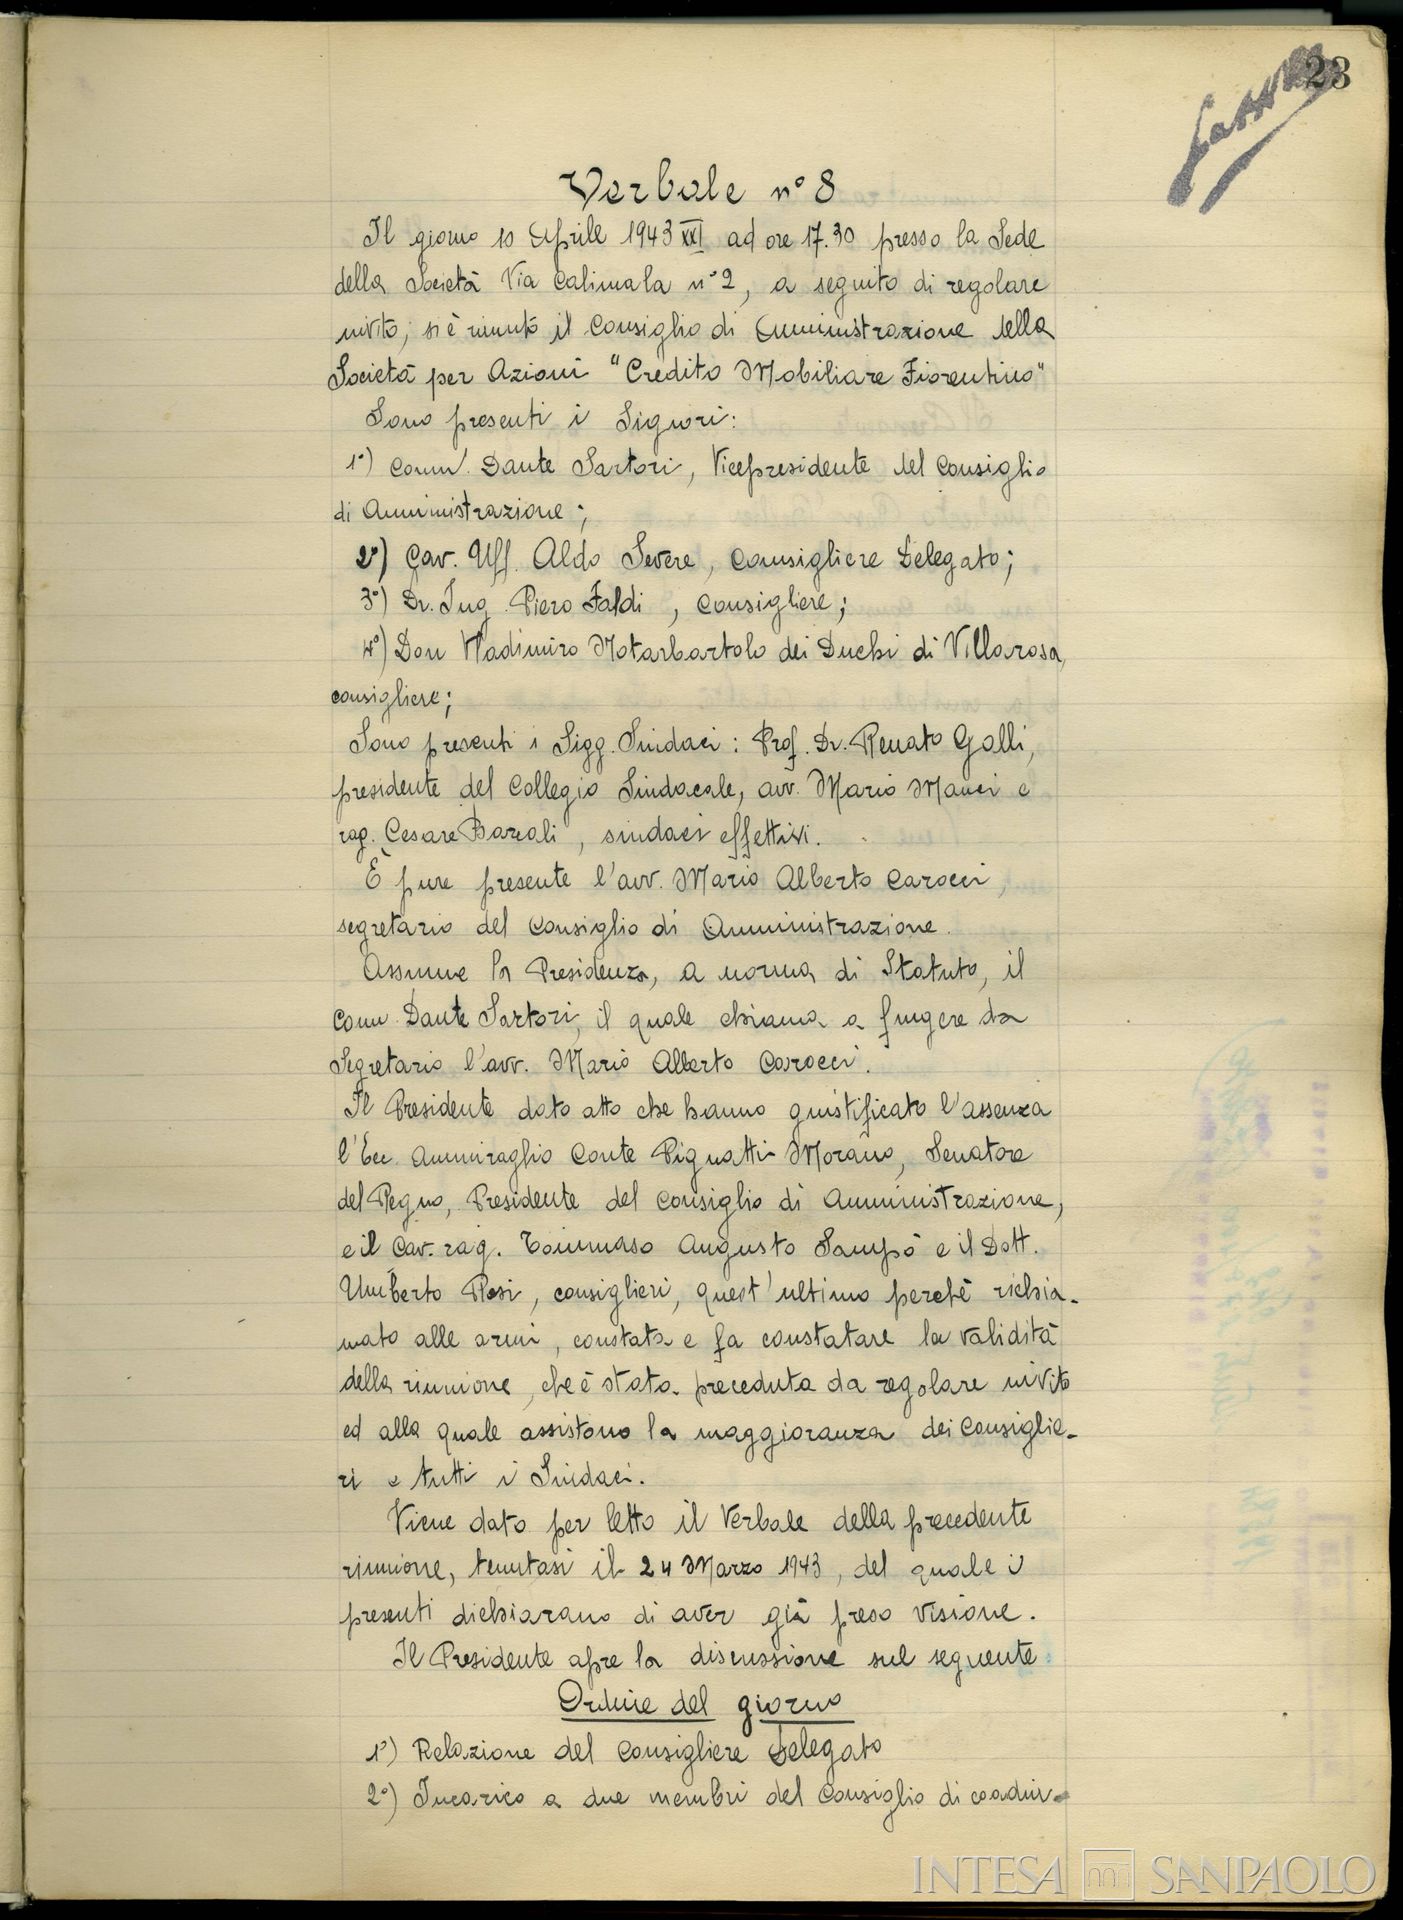 23
Verbale n° 8
Il giorno 10 Aprile 1943 XXI ad ore 17.30 presso la Sede
della Società Via Calimala n° 2, a seguito di regolare
invito, si è riunito il Consiglio di Amministrazione della
Società per Azioni "Credito Mobiliare Fiorentino"
Sono presenti i Signori:
1°) Comm. Dante Sartori, Vicepresidente del Consiglio
di Amministrazione;
2°) Cav. Uff. Aldo Severe, Consigliere Delegato;
3°) Dr. Ing. Piero Faldi, Consigliere;
4°) Don Vladimiro Notarbartolo dei Duchi di Villarosa,
consigliere;
Sono presenti i Sigg. Sindaci: Prof. Dr. Renato Galli,
presidente del Collegio Sindacale, avv. Mario Manci e
rag. Cesare Barali, sindaci effettivi.
È pure presente l'avv. Mario Alberto Carocci,
segretario del Consiglio di Amministrazione.
Assume la Presidenza, a norma di Statuto, il
Comm. Dante Sartori, il quale chiama a fungere da
Segretario l'avv. Mario Alberto Carocci.
Il Presidente dato atto che hanno giustificato l'assenza
l'Ecc. Ammiraglio Conte Pignatti Morano, Senatore
del Regno, Presidente del Consiglio di Amministrazione,
e il Cav. rag. Tommaso Augusto Sampò e il Dott.
Umberto Rosi, consiglieri, quest'ultimo perchè richia-
mato alle armi, constata e fa constatare la validità
della riunione, che è stata preceduta da regolare invito
ed alla quale assistono la maggioranza dei Consiglie-
ri e tutti i Sindaci.
Viene dato per letto il Verbale della precedente
riunione, tenutasi il 24 Marzo 1943, del quale i
presenti dichiarano di aver già preso visione.
Il Presidente apre la discussione sul seguente
Ordine del giorno
1°) Relazione del Consigliere Delegato
2°) Incarico a due membri del Consiglio di coadiu-
INTESA SANPAOLO